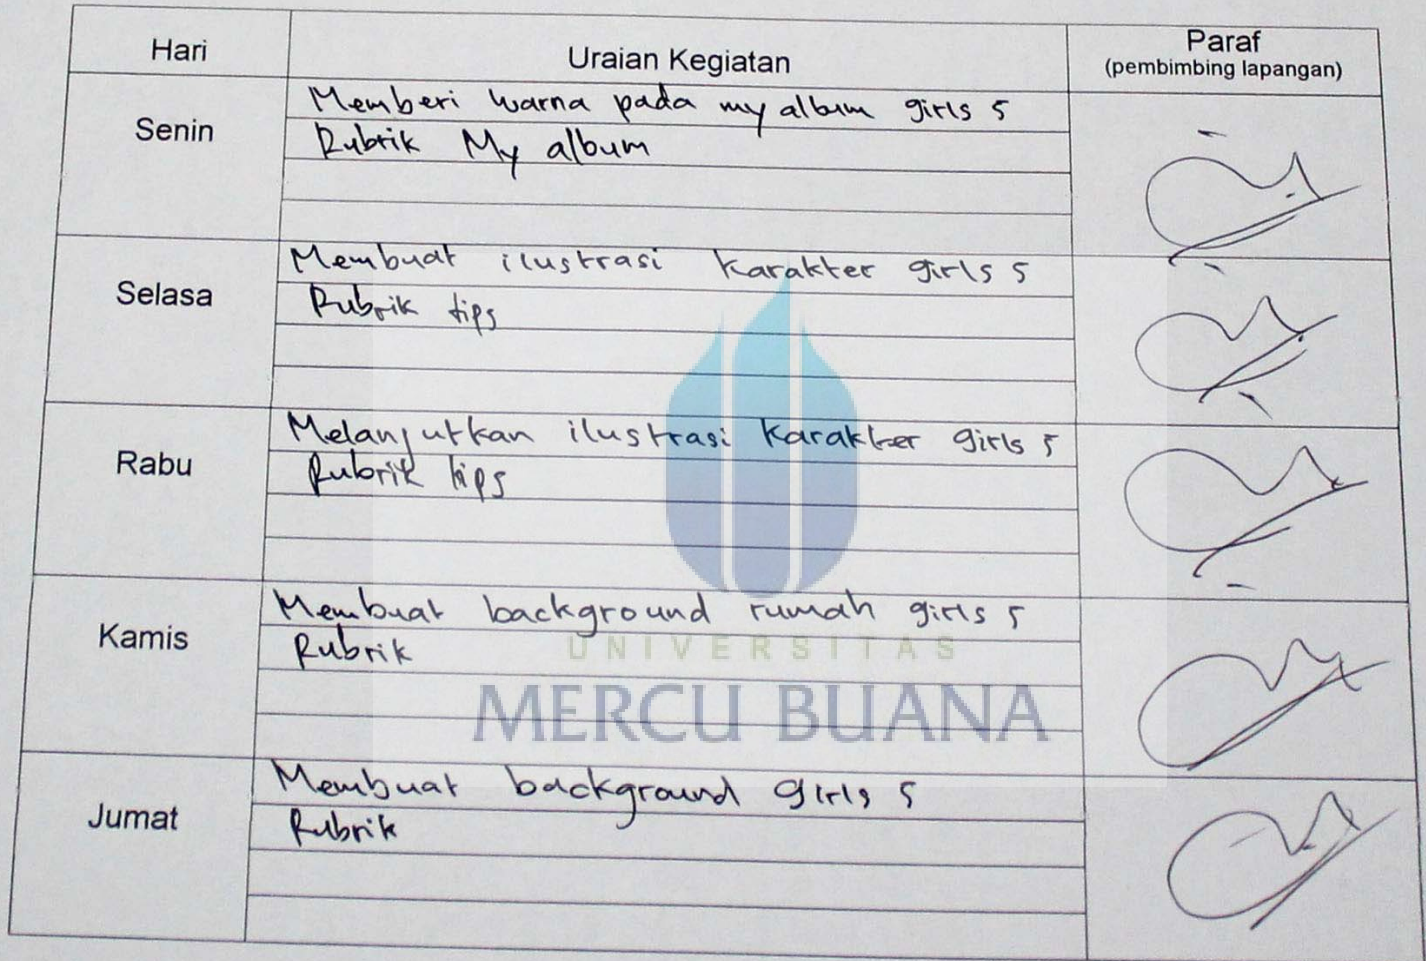 Hari Uraian Kegiatan Paraf
(pembimbing lapangan)
Senin
Memberi warna pada my album girls 5
Rubrik My album
Selasa
Membuat ilustrasi karakter girls 5
Rubrik tips
Rabu
Melanjutkan ilustrasi karakter girls 5
Rubrik tips
Kamis
Membuat background rumah girls 5
Rubrik
UNIVERSITAS
MERCU BUANA
Jumat
Membuat background girls 5
Rubrik